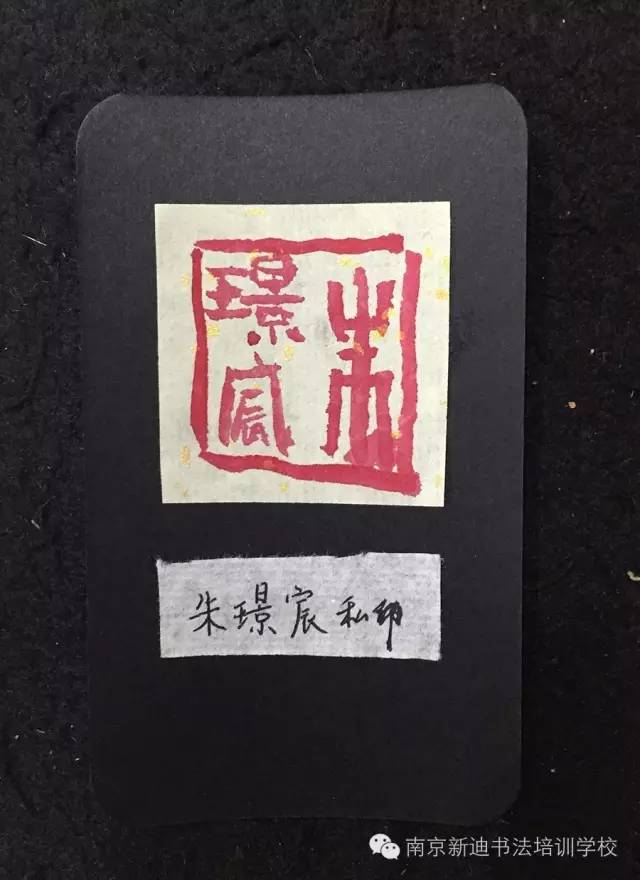 朱
璟宸
朱璟宸私印
南京新迪书法培训学校